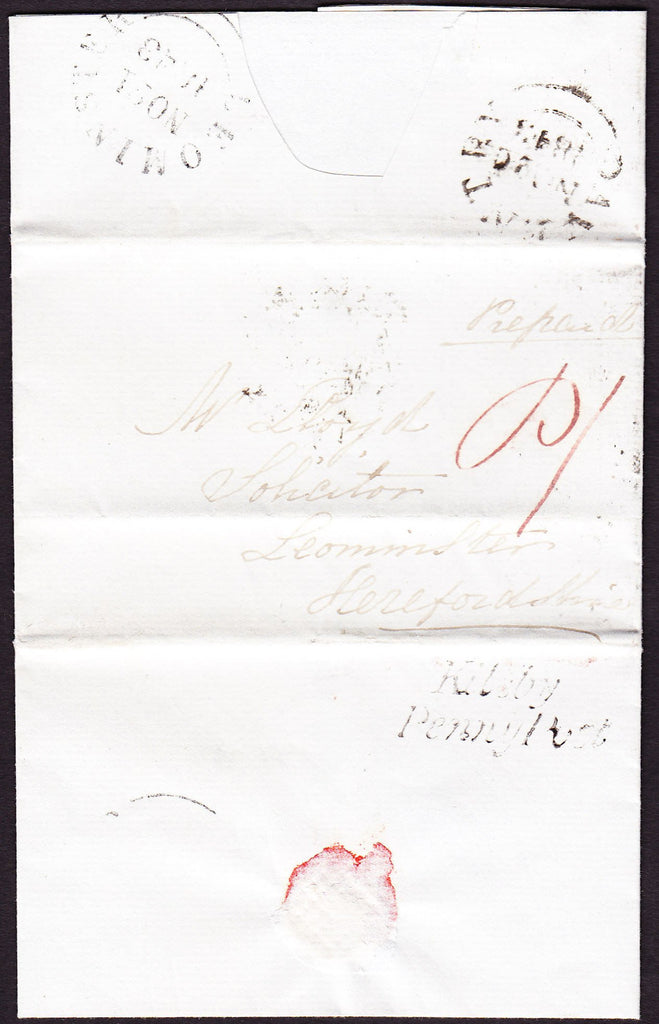 LEOMINSTER
NO 21
1843
1843
Prepaid
P1/
Mr Lloyd
Solicitor
Leominster
Herefordshire
Kilsby
Penny Post